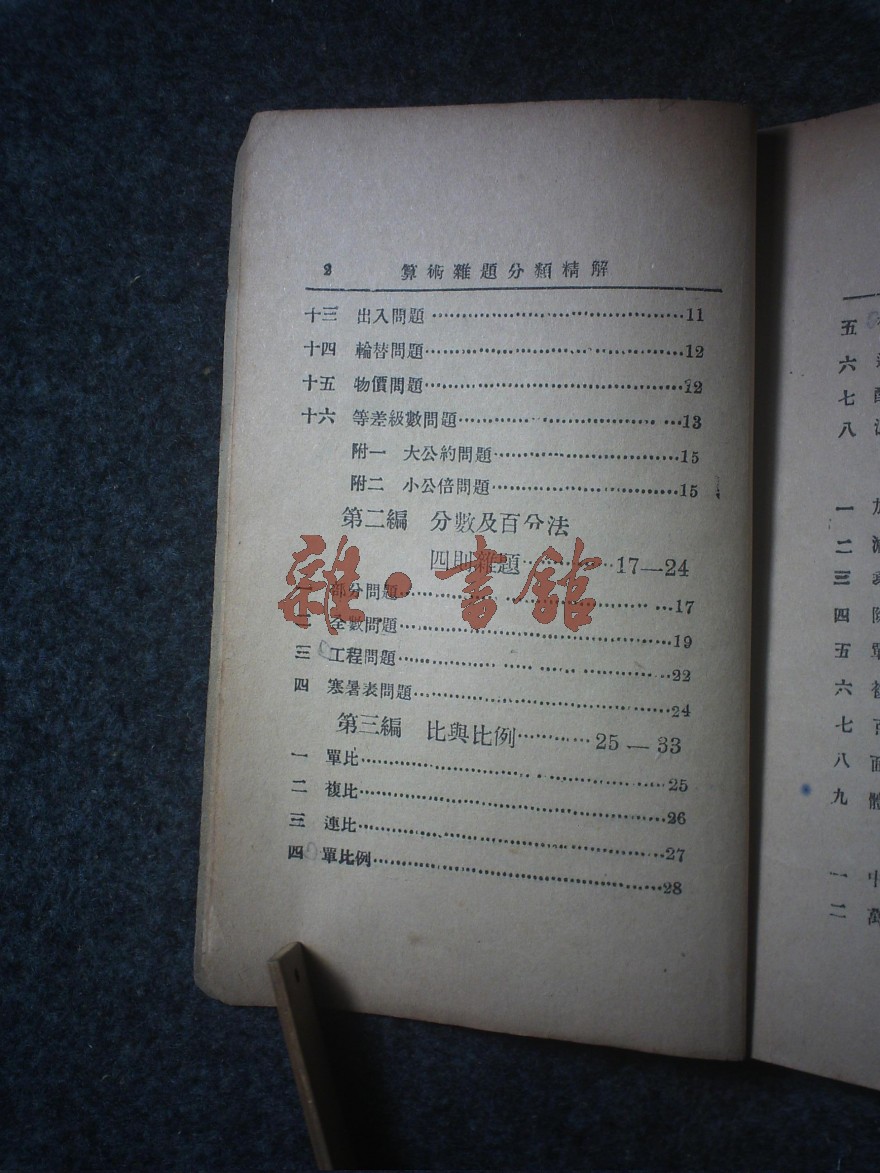 2 算術雜題分類精解
十三 出入問題 11
十四 輪替問題 12
十五 物價問題 12
十六 等差級數問題 13
附一 大公約問題 15
附二 小公倍問題 15
第二編 分數及百分法
四則雜題 17—24
一 部分問題 17
二 全數問題 19
三 工程問題 22
四 寒暑表問題 24
第三編 比與比例 25—33
一 單比 25
二 複比 26
三 連比 27
四 單比例 28
雜·書館
五
六
七
八
一
二
三
四
五
六
七
八
九
一
二